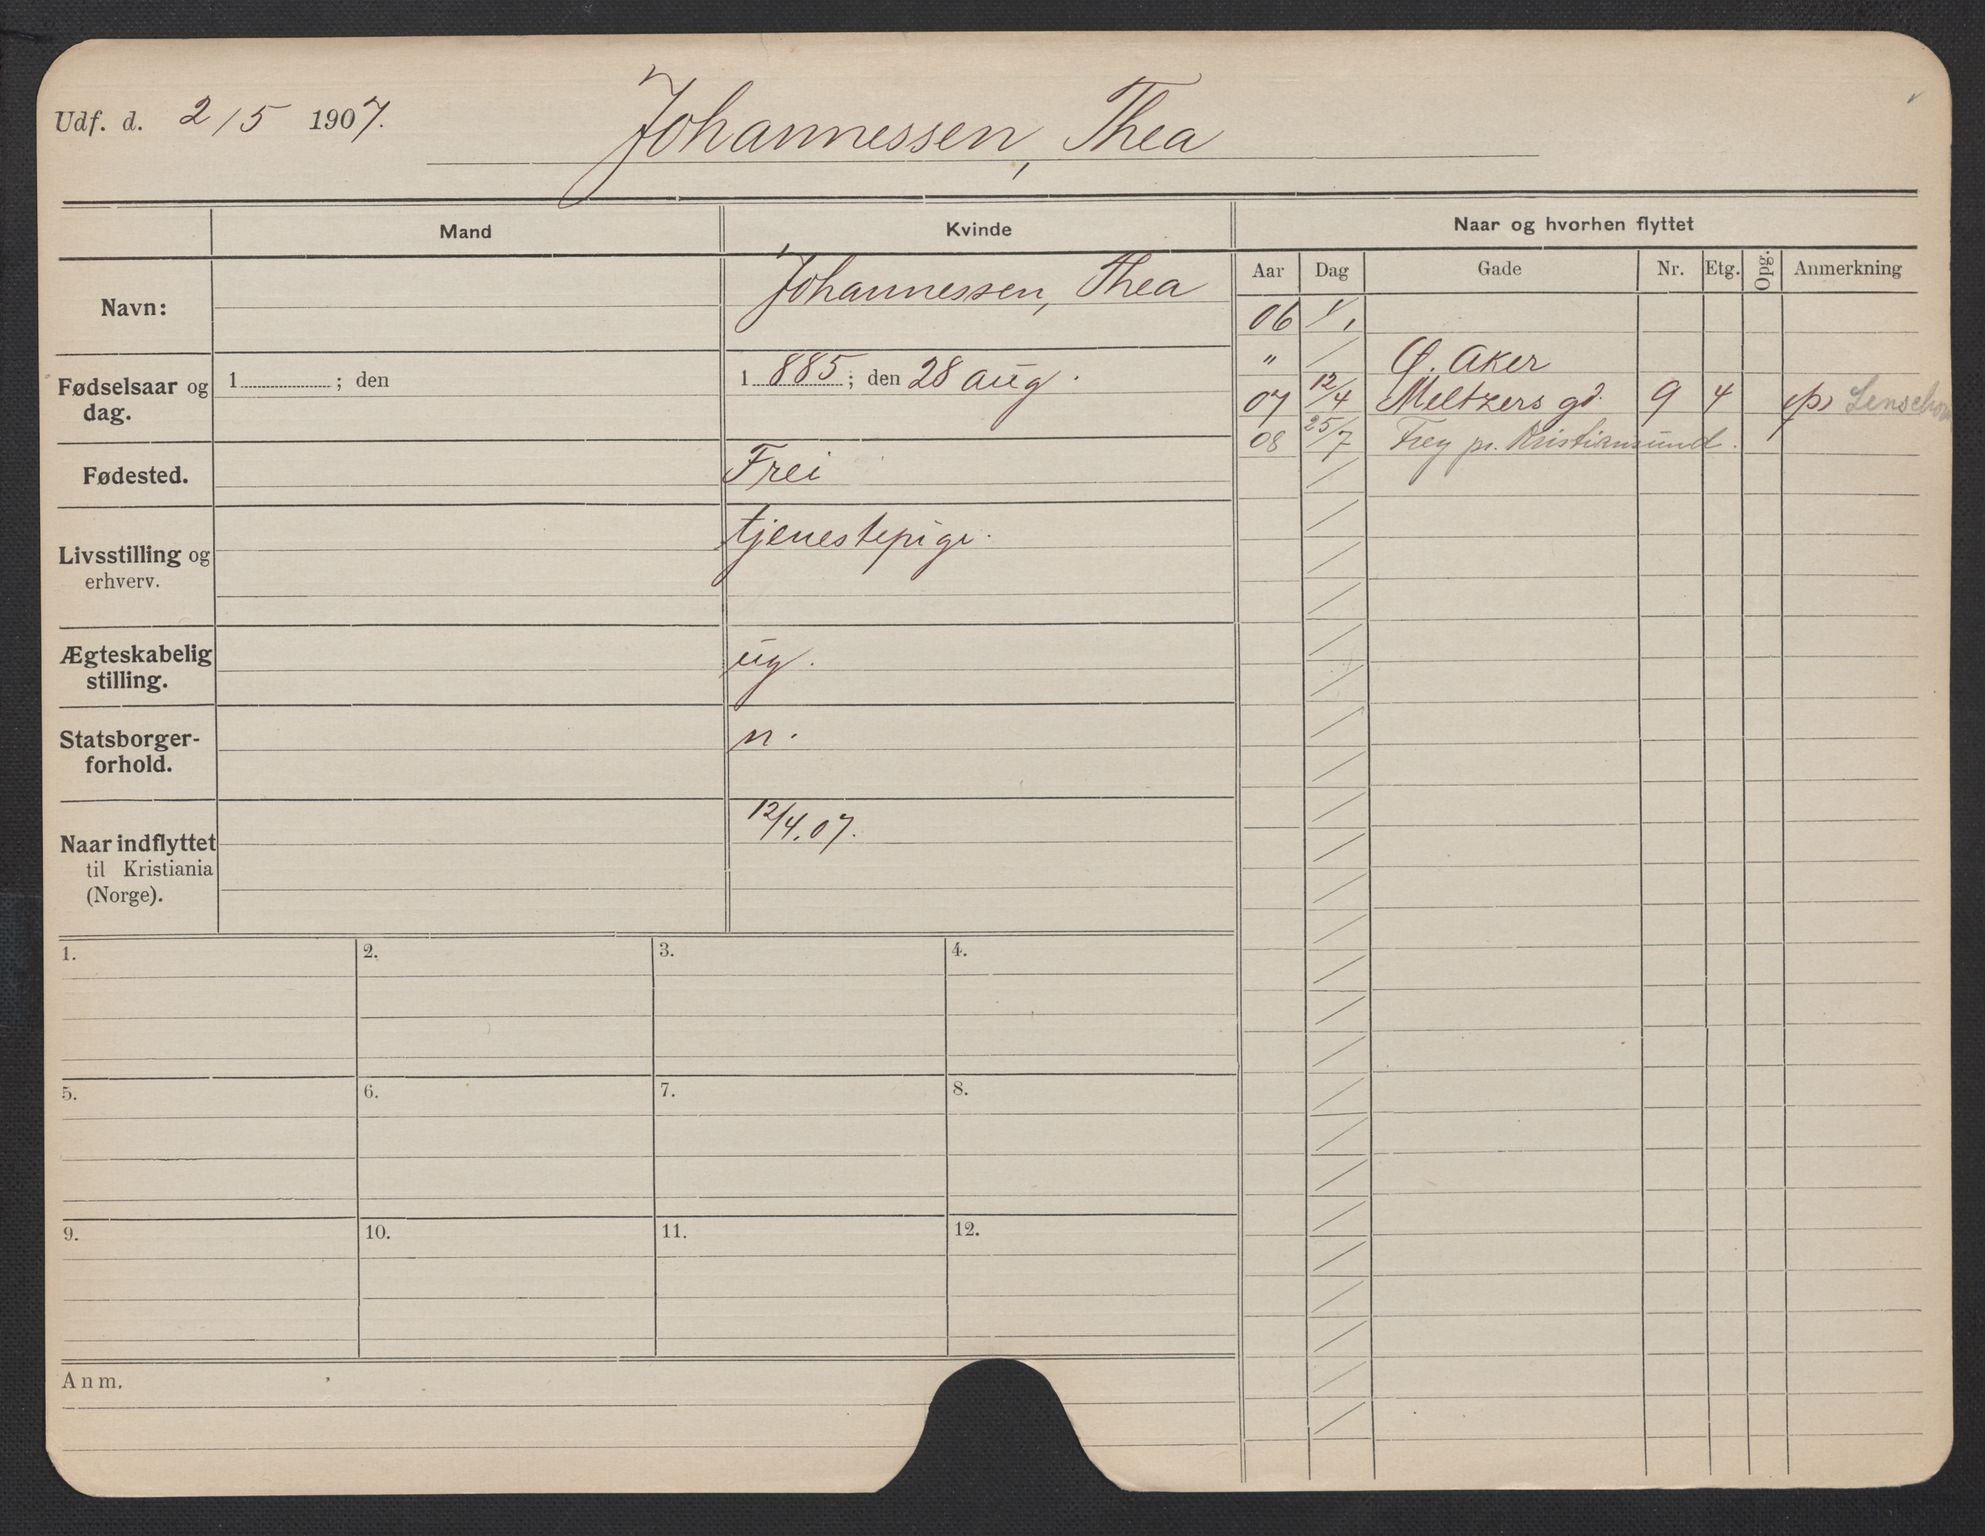 Udf. d. 2/5 1907.
Johannessen, Thea
Mand
Kvinde
Naar og hvorhen flyttet
Aar Dag Gade Nr. Etg. Opg. Anmerkning
Navn:
Johannessen, Thea
Fødselsaar og dag.
1 ; den
1885; den 28 aug.
Fødested.
Frei
Livsstilling og
erhverv.
tjenestepige.
Ægteskabelig
stilling.
ug.
Statsborger-
forhold.
n.
Naar indflyttet
til Kristiania
(Norge).
12/4.07.
06 1/1
" / Ø. Aker
07 12/4 Meltzers gd. 9 4
08 25/7 Frey pr. Kristiansund.
1. 2. 3. 4.
5. 6. 7. 8.
9. 10. 11. 12.
Anm.